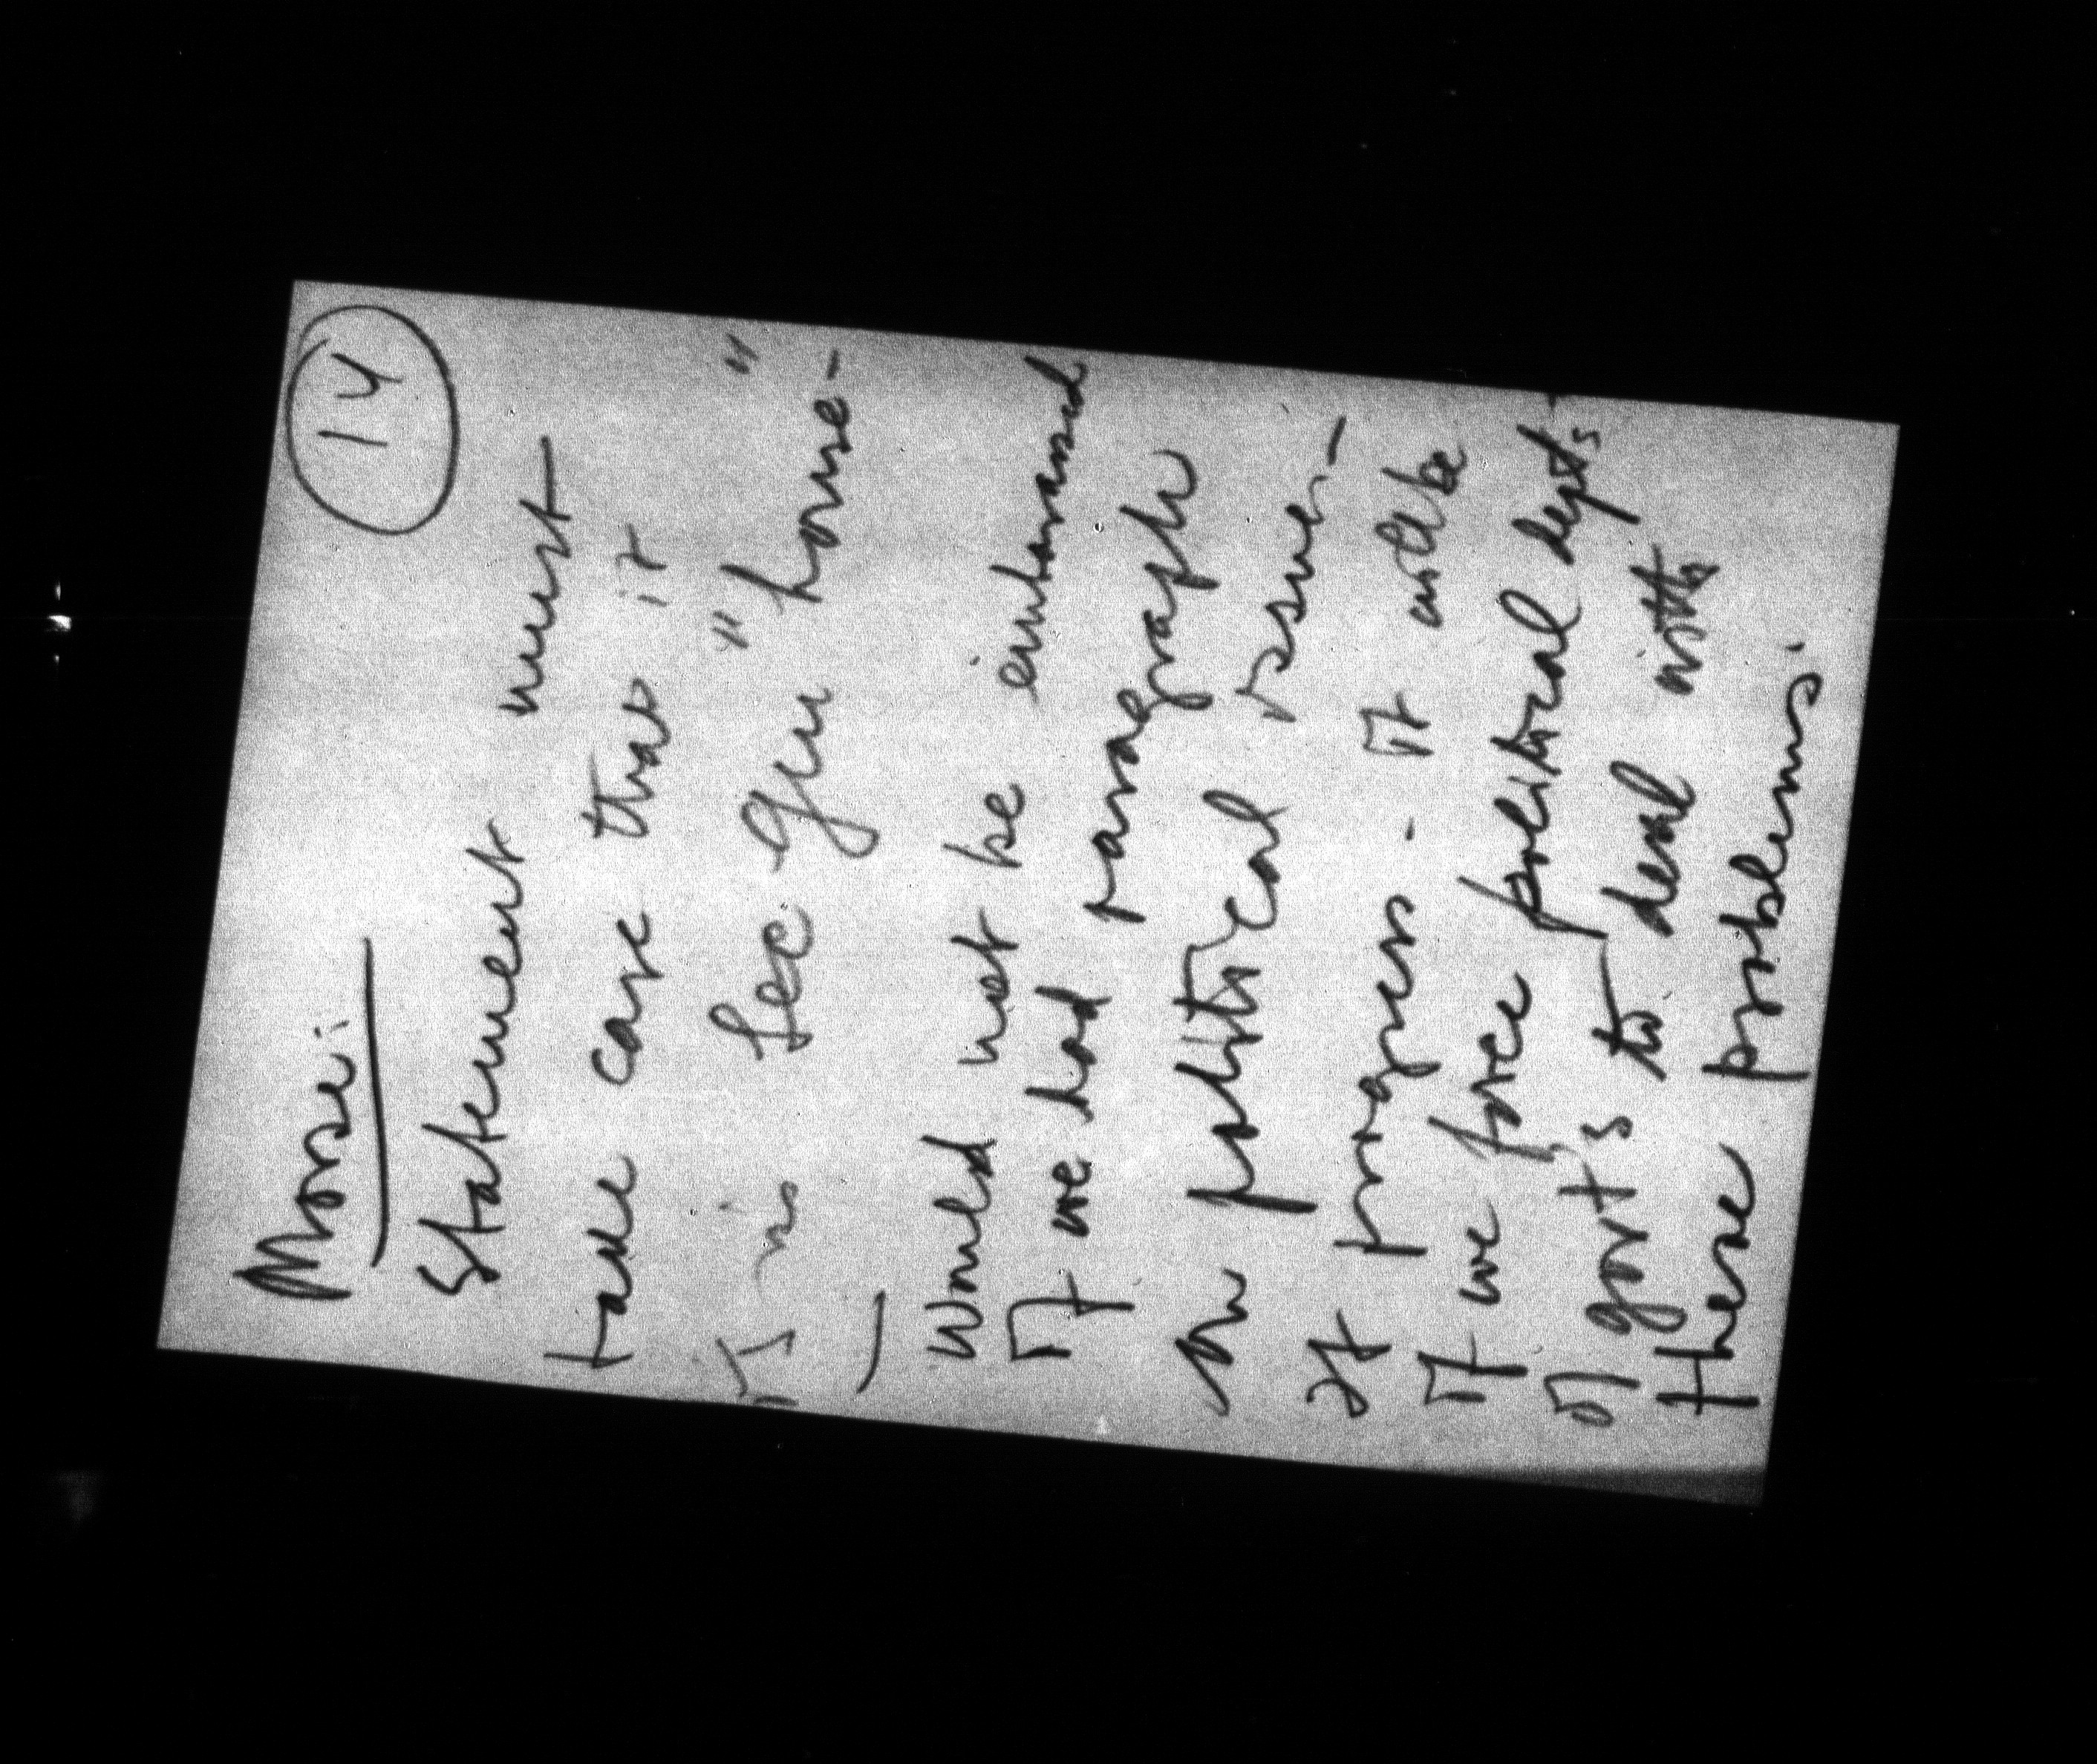 14
Morse:
Statement must
take care that it
is in Sec Gen "house"—
—
Would not be embarrassed
If we had paragraph
on political issues—
If progress. It will be
If we force political depts
of gov'ts to deal with
these problems.